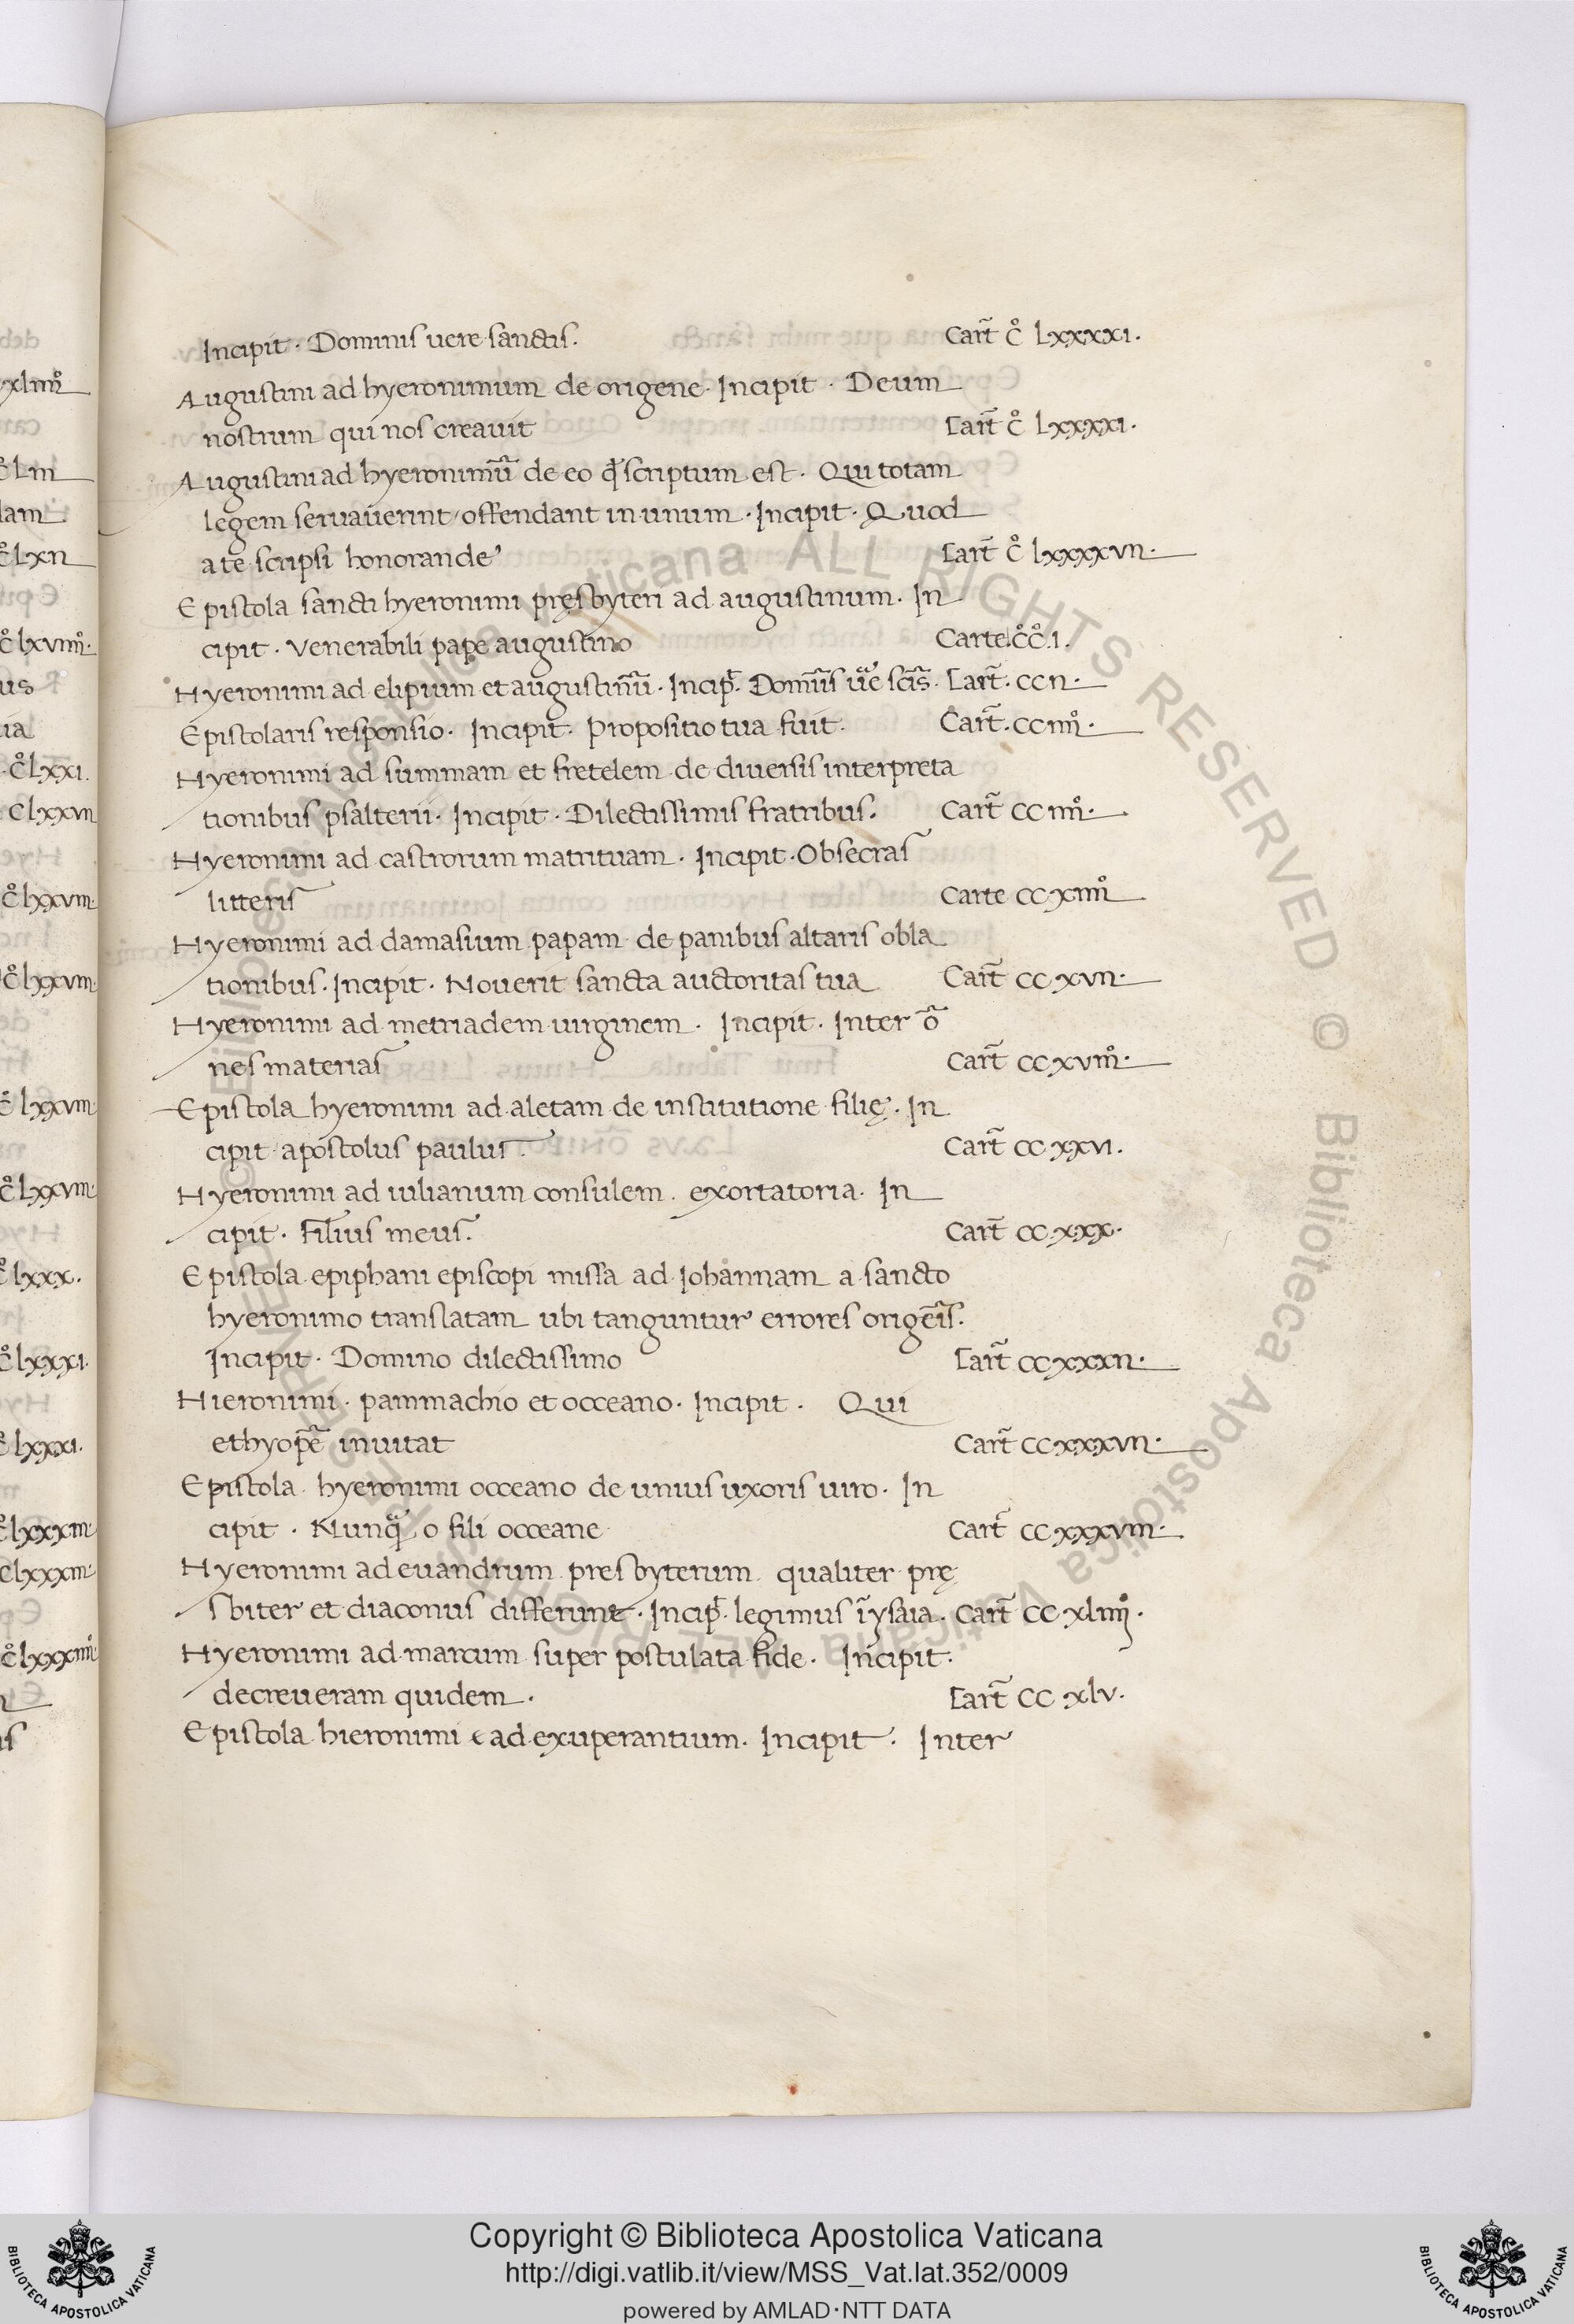 Incipit · Dominis uere sanctis. Cart̃ c̊ lxxxxi.
Augustini ad hyeronimum de origene · Incipit · Deum
nostrum qui nos creavit Cart̃ c̊ lxxxxi.
Augustini ad hyeronimũ de eo qđ scriptum est · Qui totam
legem servaverint / offendant in unum · Incipit · Quod
a te scripsi honorande Cart̃ c̊ lxxxxvıı.
Epistola sancti hyeronimi pręsbyteri ad augustinum · In
cipit · venerabili pape augustino Carte c̊c̊.ı.
Hyeronimi ad elipium et augustinũ · Incip̃. Domĩs ũe sc̃is. Cart̃. ccıı.
Epistolaris responsio. Incipit. Propositio tua fuit. Cart̃. ccıııı̊.
Hyeronimi ad summam et fretelem de diversis interpreta
tionibus psalterii · Incipit · Dilectissimis fratribus. Cart̃ ccıııı̊.
Hyeronimi ad castrorum matrituam · Incipit · Obsecras
litteris Carte ccxıııı̊
Hyeronimi ad damasium papam de panibus altaris obla
tionibus. Incipit. Noverit sancta auctoritas tua Cart̃ ccxvıı.
Hyeronimi ad metriadem virginem · Incipit · Inter õ
nes materias Cart̃ ccxvııı̊.
Epistola hyeronimi ad aletam de institutione filię · In
cipit apostolus paulus Cart̃ ccxxvı.
Hyeronimi ad iulianum consulem. exortatoria. In
cipit · Filius meus. Cart̃ ccxxx.
Epistola epiphani episcopi missa ad Iohannam a sancto
hyeronimo translatam ubi tanguntur errores origẽis.
Incipit · Domino dilectissimo Cart̃ ccxxxıı.
Hieronimi · pammachio et occeano · Incipit · Qui
ethyopẽ invitat Cart̃ ccxxxvıı.
Epistola hyeronimi occeano de unius uxoris viro · In
cipit · Nunq̃ o fili occeane Cart̃ ccxxxvııı.
Hyeronimi ad evandrum presbyterum qualiter prę
sbiter et diaconus differunt · Incip̃. legimus ĩ ysaia. Cart̃ ccxlıııı̊.
Hyeronimi ad marcum super postulata fide · Incipit.
decreveram quidem. Cart̃ cc xlv.
Epistola hieronimi ad exuperantium. Incipit. Inter
Copyright © Biblioteca Apostolica Vaticana
http://digi.vatlib.it/view/MSS_Vat.lat.352/0009
powered by AMLAD·NTT DATA